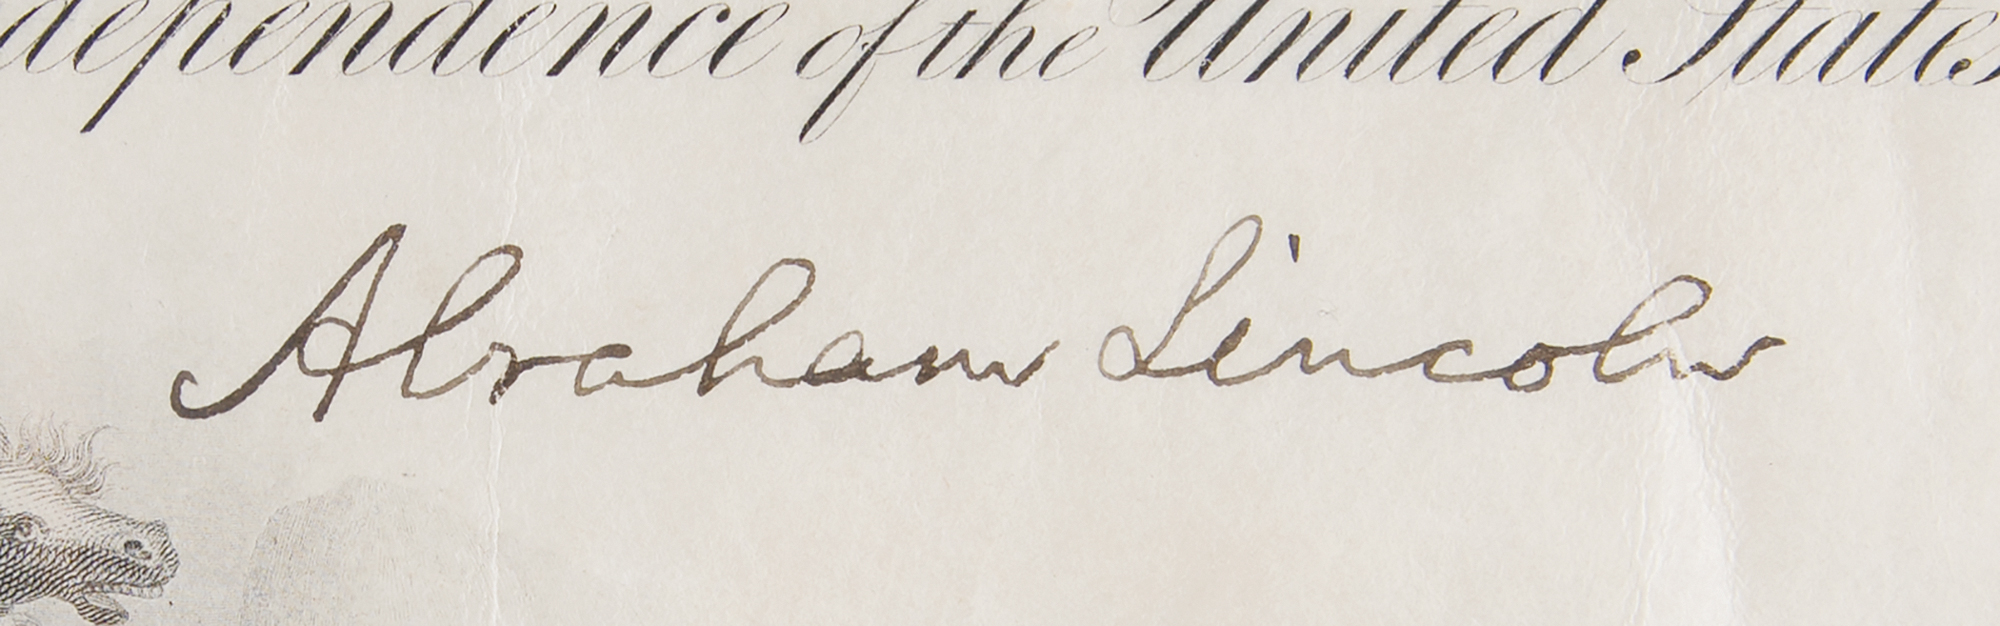 dependence of the United States
Abraham Lincoln